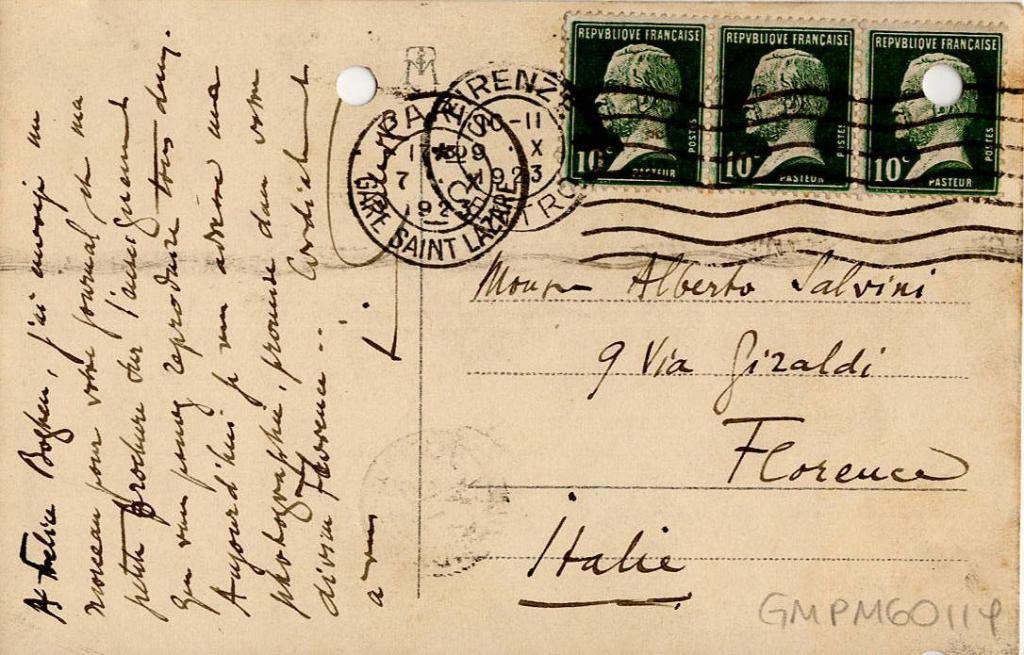 A Felice Boghen, j'ai envoyé un
morceau pour votre journal, et ma
petite brochure sur l'enseignement
que vous pouvez reproduire tous deux.
Aujourd'hui je vous adresse une
photographie, promise dans votre
divine Florence...
a vous Cordialement
REPVBLIQVE FRANÇAISE
10c
POSTES
PASTEUR
REPVBLIQVE FRANÇAISE
10c
POSTES
PASTEUR
REPVBLIQVE FRANÇAISE
10c
POSTES
PASTEUR
FIRENZE
10-11
X
1923
PARIS
7 X
1923
GARE SAINT LAZARE
Alberto Salvini
9 Via Giraldi
Florence
Italie
GMPM60114